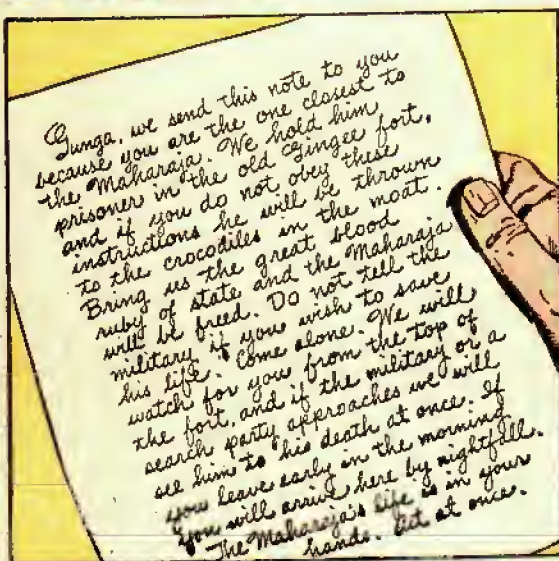 Gunga, we send this note to you
because you are the one closest to
the Maharaja. We hold him
prisoner in the old Gingee fort,
and if you do not obey these
instructions he will be thrown
to the crocodiles in the moat.
Bring us the great blood
ruby of state and the Maharaja
will be freed. Do not tell the
military if you wish to save
his life. Come alone. We will
watch for you from the top of
the fort, and if the military or a
search party approaches we will
see him to his death at once. If
you leave early in the morning
you will arrive here by nightfall.
The Maharaja's life is in your
hands. Act at once.